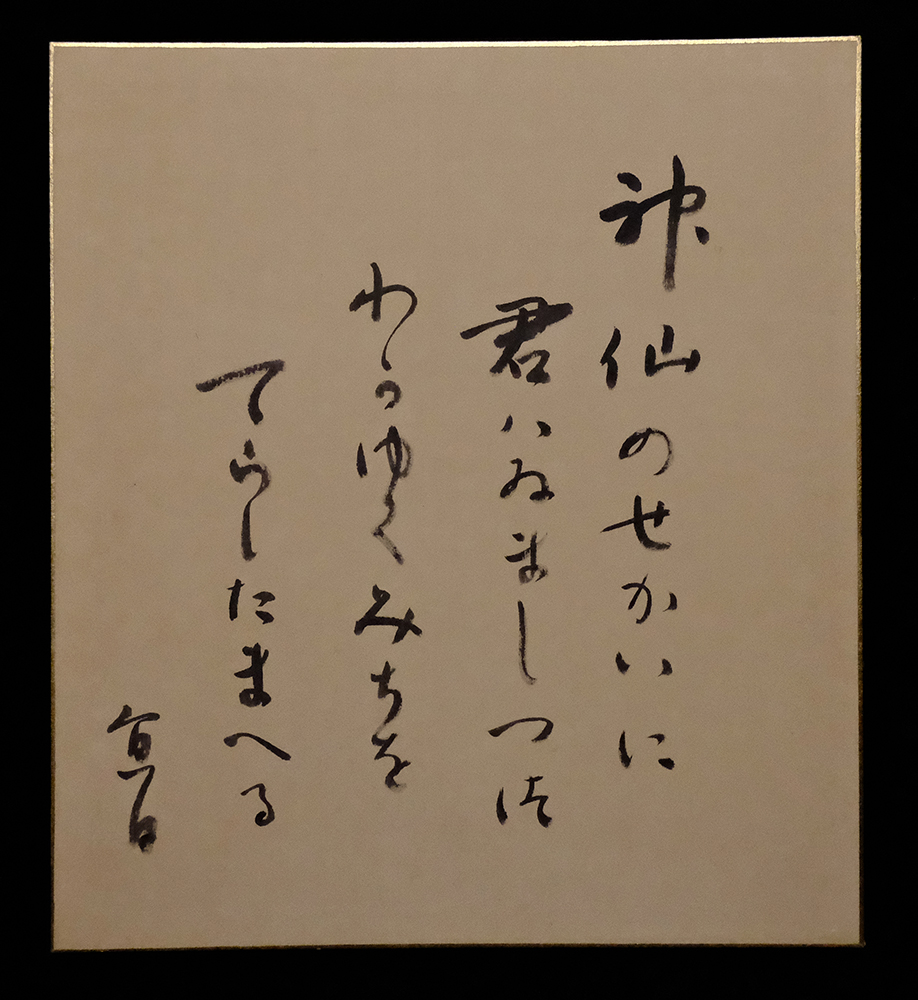 神仙のせかいに
君ハゐましつつ
わかゆくみちを
てらしたまへる